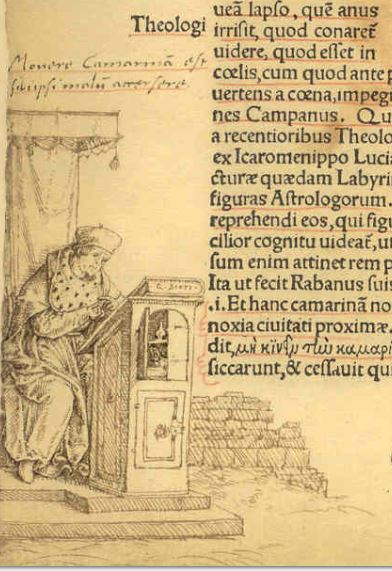 Theologi
Mouere Camarinã est
sibiipsi malũ accersere.
ueã lapſo, quẽ anus
irriſit, quod conaret̃
uidere, quod eſſet in
cœlis, cum quod ante p
uertens a cœna, impegi
nes Campanus. Qu
a recentioribus Theolo
ex Icaromenippo Lucia
cturæ quædam Labyri
figuras Aſtrologorum.
reprehendi eos, qui figu
cilior cognitu uideat̃, u
ſum enim attinet rem p
Ita ut fecit Rabanus ſuis
.i. Et hanc camarinã no
noxia ciuitati proximæ.
dit, μὴ κίνει τὼ καμαρι
ſiccarunt, & ceſſauit qui